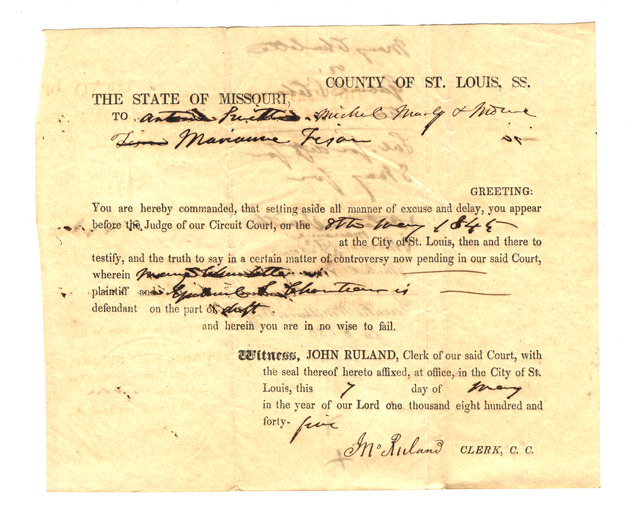 COUNTY OF ST. LOUIS, SS.
THE STATE OF MISSOURI,
TO Michel Marly & Mdme
Marianne Tison
GREETING:
You are hereby commanded, that setting aside all manner of excuse and delay, you appear
before the Judge of our Circuit Court, on the 8th May 1845
at the City of St. Louis, then and there to
testify, and the truth to say in a certain matter of controversy now pending in our said Court,
wherein Mary Charlotte is
plaintiff and Gabriel S. Chouteau is
defendant on the part of deft
and herein you are in no wise to fail.
Witness, JOHN RULAND, Clerk of our said Court, with
the seal thereof hereto affixed, at office, in the City of St.
Louis, this 7 day of May
in the year of our Lord one thousand eight hundred and
forty- five
Jno Ruland CLERK, C. C.